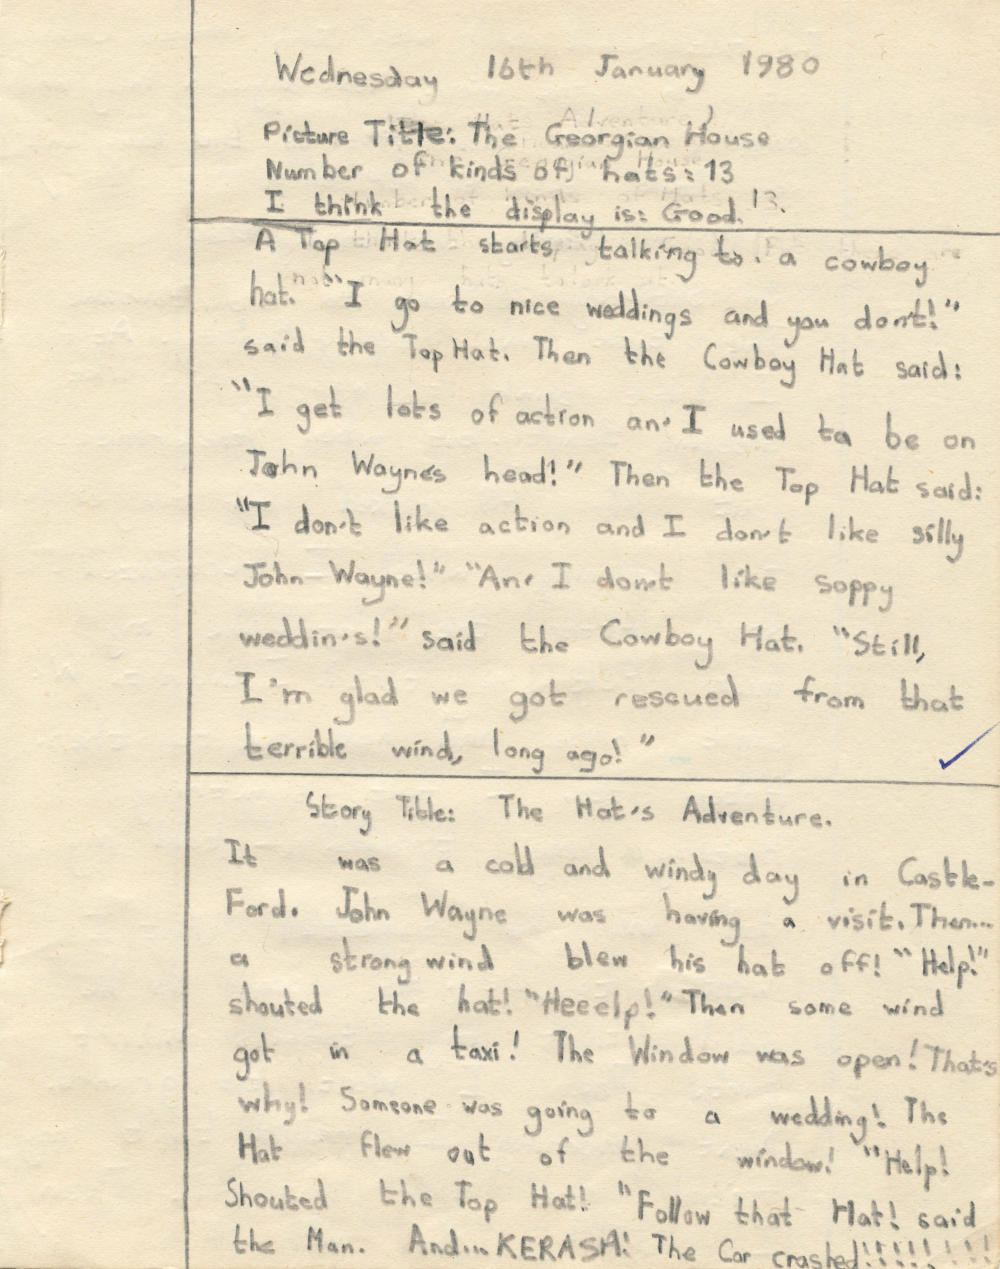 Wednesday 16th January 1980
Picture Title: The Georgian House
Number of kinds of hats: 13
I think the display is: Good. 13.
A Top Hat starts talking to a cowboy
hat. "I go to nice weddings and you don't!"
said the Top Hat. Then the Cowboy Hat said:
"I get lots of action an' I used to be on
John Wayne's head!" Then the Top Hat said:
"I don't like action and I don't like silly
John Wayne!" "An' I don't like soppy
weddin's!" said the Cowboy Hat. "Still,
I'm glad we got rescued from that
terrible wind, long ago!"
Story Title: The Hat's Adventure.
It was a cold and windy day in Castle-
Ford. John Wayne was having a visit. Then...
a strong wind blew his hat off! "Help!"
shouted the hat! "Heeelp!" Then some wind
got in a taxi! The Window was open! That's
why! Someone was going to a wedding! The
Hat flew out of the window! "Help!
Shouted the Top Hat! "Follow that Hat! said
the Man. And... KERASH! The Car crashed!!!!!!!!